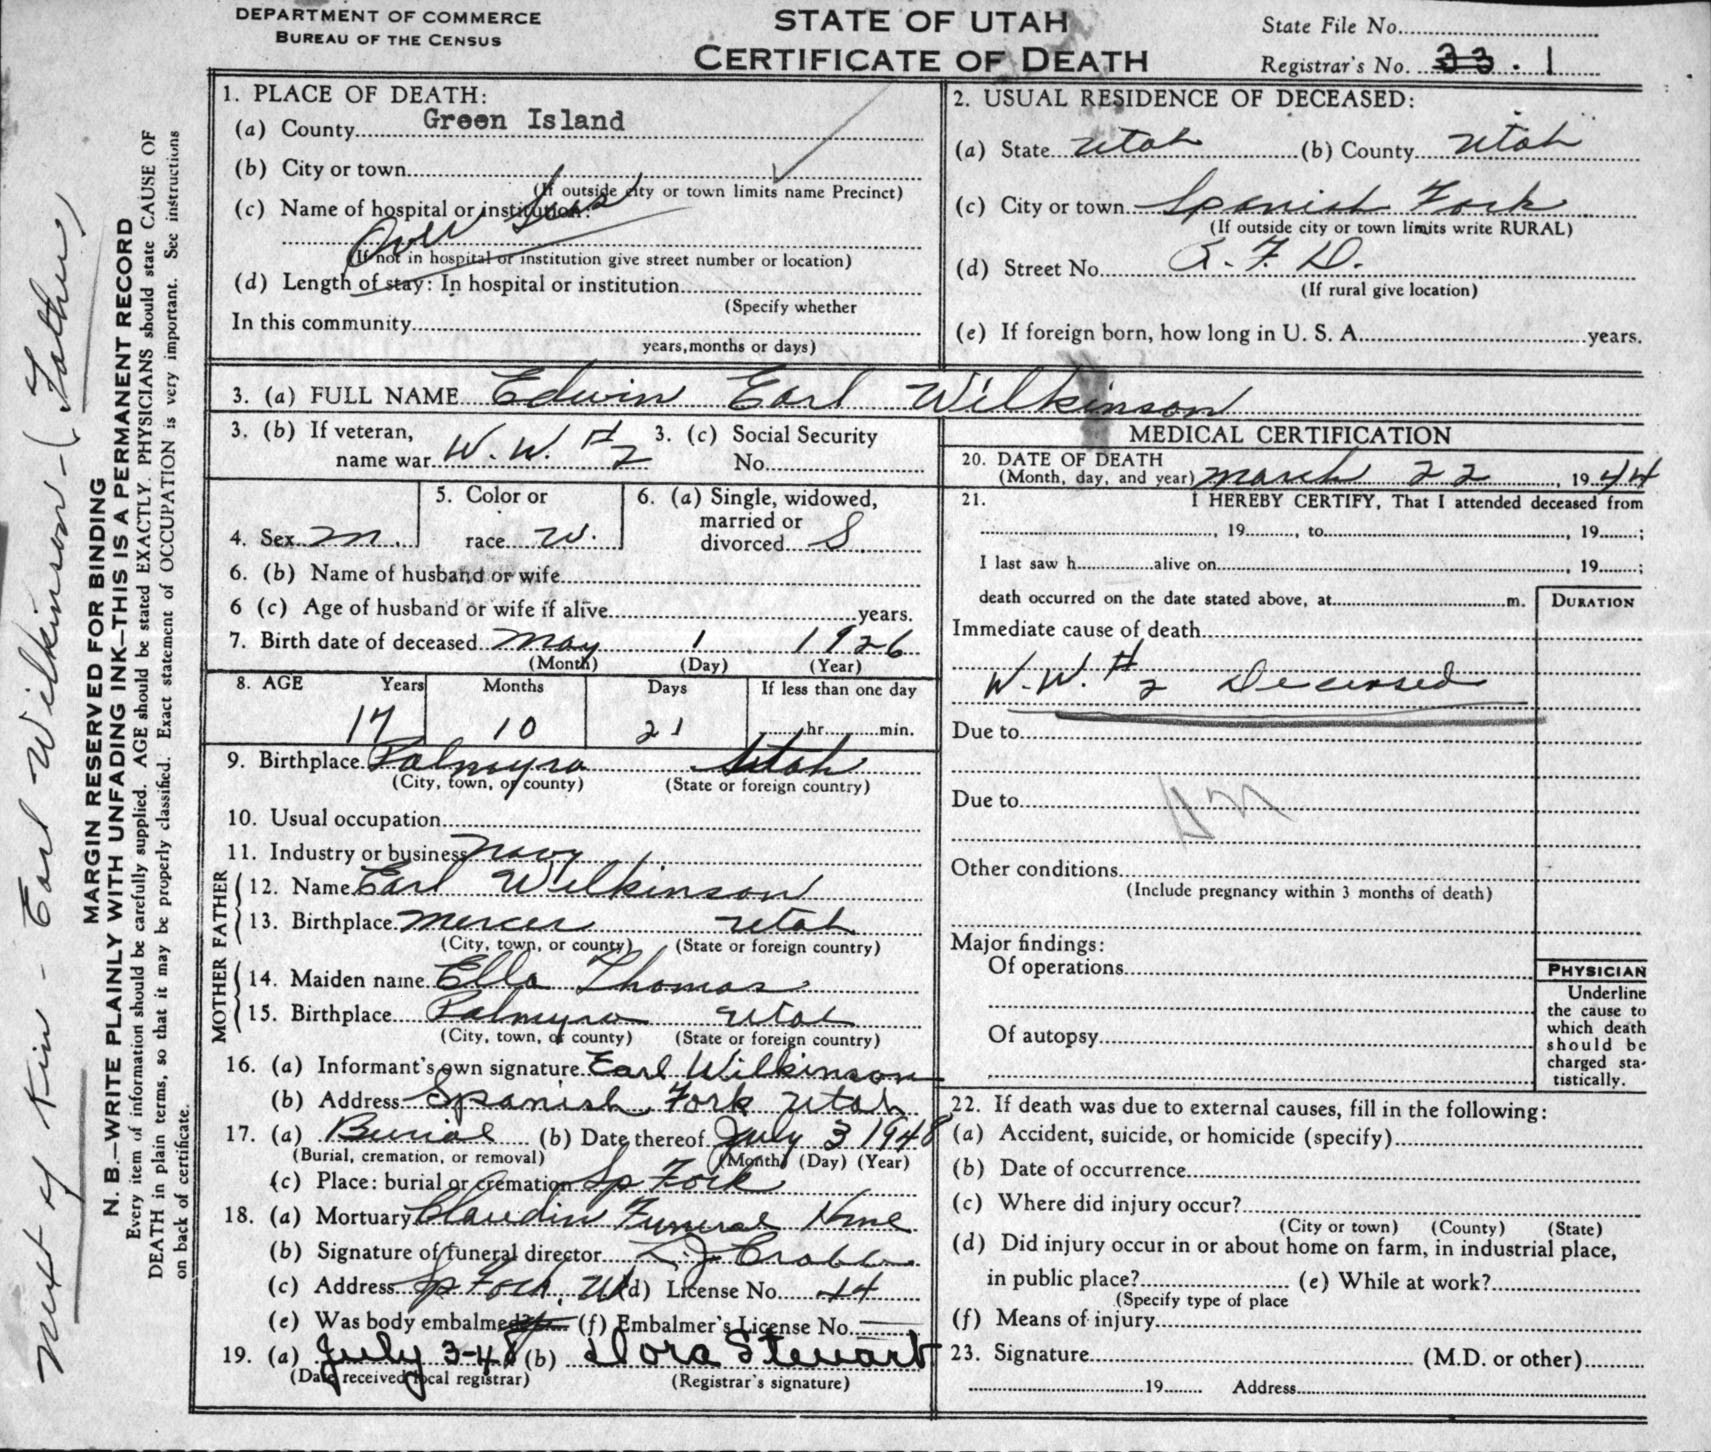 DEPARTMENT OF COMMERCE
BUREAU OF THE CENSUS
STATE OF UTAH
CERTIFICATE OF DEATH
State File No.
Registrar's No. 33. 1
1. PLACE OF DEATH:
(a) County Green Island
(b) City or town
(If outside city or town limits name Precinct)
(c) Name of hospital or institution:
Over Seas
(If not in hospital or institution give street number or location)
(d) Length of stay: In hospital or institution
(Specify whether
In this community
years, months or days)
2. USUAL RESIDENCE OF DECEASED:
(a) State Utah (b) County Utah
(c) City or town Spanish Fork
(If outside city or town limits write RURAL)
(d) Street No. R. F. D.
(If rural give location)
(e) If foreign born, how long in U. S. A. years.
3. (a) FULL NAME Edwin Earl Wilkinson
3. (b) If veteran,
name war W. W. # 2
3. (c) Social Security
No.
4. Sex M.
5. Color or
race W.
6. (a) Single, widowed,
married or
divorced S
6. (b) Name of husband or wife
6 (c) Age of husband or wife if alive years.
7. Birth date of deceased May 1 1926
(Month) (Day) (Year)
8. AGE Years Months Days If less than one day
17 10 21 hr. min.
9. Birthplace Palmyra Utah
(City, town, or county) (State or foreign country)
10. Usual occupation
11. Industry or business Navy
FATHER
12. Name Earl Wilkinson
13. Birthplace Mercer Utah
(City, town, or county) (State or foreign country)
MOTHER
14. Maiden name Ella Thomas
15. Birthplace Palmyra Utah
(City, town, or county) (State or foreign country)
16. (a) Informant's own signature Earl Wilkinson
(b) Address Spanish Fork Utah
17. (a) Burial (b) Date thereof July 3 1948
(Burial, cremation, or removal) (Month) (Day) (Year)
(c) Place: burial or cremation Sp Fork
18. (a) Mortuary Claudin Funeral Home
(b) Signature of funeral director
(c) Address Sp Fork, Ut (d) License No. 14
(e) Was body embalmed? (f) Embalmer's License No.
19. (a) July 3-48 (b) Dora Stewart
(Date received local registrar) (Registrar's signature)
MEDICAL CERTIFICATION
20. DATE OF DEATH
(Month, day, and year) March 22, 1944
21. I HEREBY CERTIFY, That I attended deceased from
, 19 , to , 19 ;
I last saw h alive on , 19 ;
death occurred on the date stated above, at m.
DURATION
Immediate cause of death
W. W. # 2 Deceased
Due to
Due to
Other conditions
(Include pregnancy within 3 months of death)
Major findings:
Of operations
Of autopsy
PHYSICIAN
Underline
the cause to
which death
should be
charged sta-
tistically.
22. If death was due to external causes, fill in the following:
(a) Accident, suicide, or homicide (specify)
(b) Date of occurrence
(c) Where did injury occur?
(City or town) (County) (State)
(d) Did injury occur in or about home on farm, in industrial place,
in public place? (e) While at work?
(Specify type of place
(f) Means of injury
23. Signature (M.D. or other)
19 Address
Next of Kin - Earl Wilkinson - (Father)
MARGIN RESERVED FOR BINDING
N. B.—WRITE PLAINLY WITH UNFADING INK—THIS IS A PERMANENT RECORD
Every item of information should be carefully supplied. AGE should be stated EXACTLY. PHYSICIANS should state CAUSE OF
DEATH in plain terms, so that it may be properly classified. Exact statement of OCCUPATION is very important. See instructions
on back of certificate.